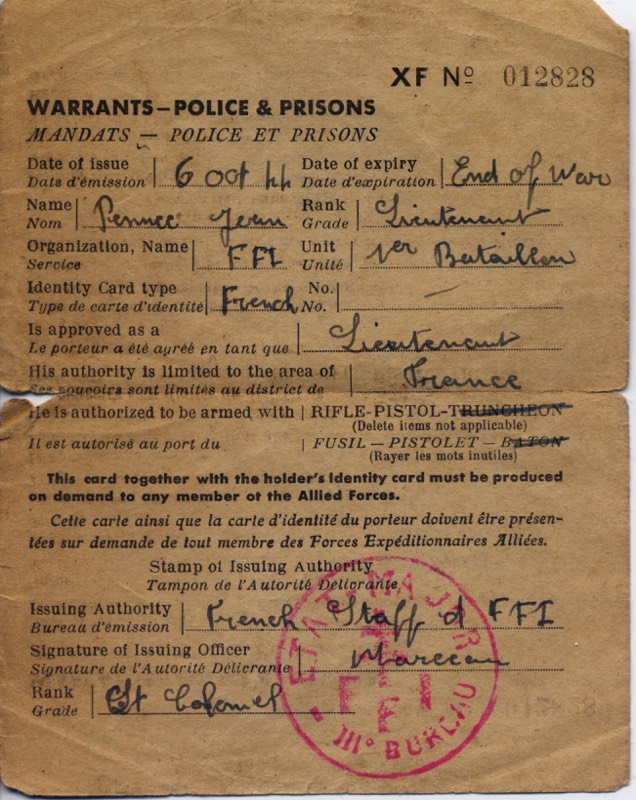 XF Nº 012828
WARRANTS—POLICE & PRISONS
MANDATS — POLICE ET PRISONS
Date of issue 6 Oct 44 Date of expiry End of War
Date d'émission Date d'expiration
Name Pennec Jean Rank Lieutenant
Nom Grade
Organization, Name FFI Unit 1er Bataillon
Service Unité
Identity Card type French No. —
Type de carte d'identité No.
Is approved as a Lieutenant
Le porteur a été agréé en tant que
His authority is limited to the area of France
Ses pouvoirs sont limités au district de
He is authorized to be armed with RIFLE-PISTOL-TRUNCHEON
(Delete items not applicable)
Il est autorisé au port du FUSIL — PISTOLET — BATON
(Rayer les mots inutiles)
This card together with the holder's identity card must be produced
on demand to any member of the Allied Forces.
Cette carte ainsi que la carte d'identité du porteur doivent être présen-
tées sur demande de tout membre des Forces Expéditionnaires Alliées.
Stamp of Issuing Authority
Tampon de l'Autorité Délivrante
Issuing Authority French Staff of FFI
Bureau d'émission
Signature of Issuing Officer Marceau
Signature de l'Autorité Délivrante
Rank Lt Colonel
Grade
ETAT-MAJOR
FFI
IIIº BUREAU